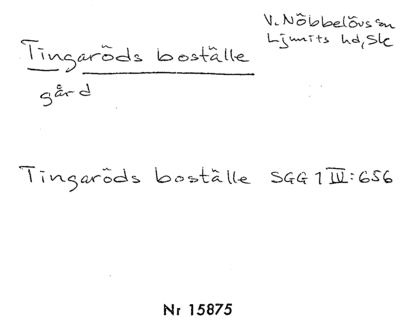 V. Nöbbelövs sn
Ljunits hd, Sk
Tingaröds boställe
gård
Tingaröds boställe SGG 1 IV:656
Nr 15875